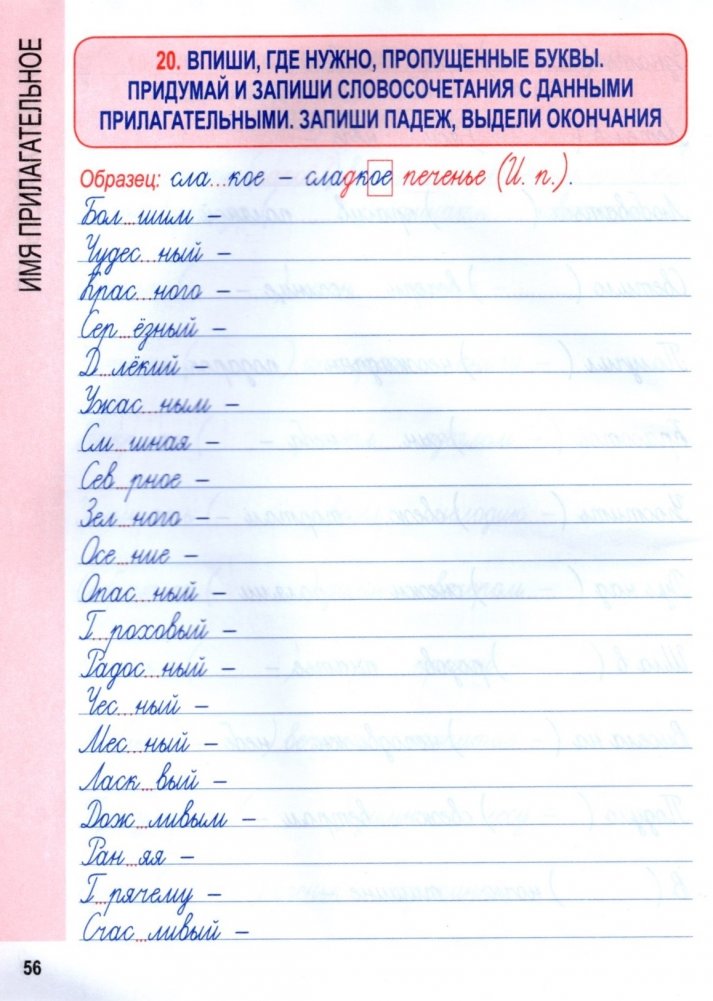 ИМЯ ПРИЛАГАТЕЛЬНОЕ
20. ВПИШИ, ГДЕ НУЖНО, ПРОПУЩЕННЫЕ БУКВЫ.
ПРИДУМАЙ И ЗАПИШИ СЛОВОСОЧЕТАНИЯ С ДАННЫМИ
ПРИЛАГАТЕЛЬНЫМИ. ЗАПИШИ ПАДЕЖ, ВЫДЕЛИ ОКОНЧАНИЯ
Образец: сла...кое – сладкое печенье (И. п.).
Бол...шим –
Чудес...ный –
Крас...ного –
Сер...ёзный –
Д...лёкий –
Ужас...ным –
См...шная –
Сев...рное –
Зел...ного –
Осе...ние –
Опас...ный –
Г...роховый –
Радос...ный –
Чес...ный –
Мес...ный –
Ласк...вый –
Дож...ливым –
Ран...яя –
Г...рячему –
Счас...ливый –
56